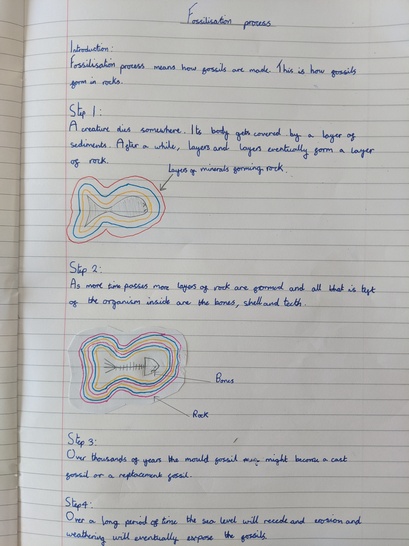 Fossilisation process
Introduction:
Fossilisation process means how fossils are made. This is how fossils
form in rocks.
Step 1:
A creature dies somewhere. Its body gets covered by a layer of
sediments. After a while, layers and layers eventually form a layer
of rock.
Layers of minerals forming rock.
Step 2:
As more time passes more layers of rock are formed and all what is left
of the organism inside are the bones, shell and teeth.
Bones
Rock
Step 3:
Over thousands of years the mould fossil might become a cast
fossil or a replacement fossil.
Step4:
Over a long period of time the sea level will recede and erosion and
weathering will eventually expose the fossils.